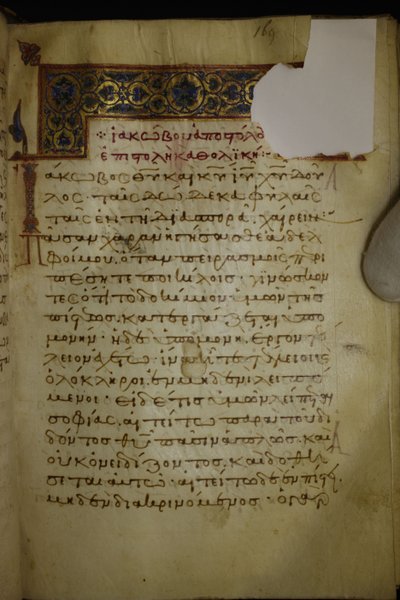 169
ἰακώβου ἀποστόλο
ἐπιστολὴ καθολϊκή
Ἰάκωβος θ̅υ̅ καὶ κ̅υ̅ ι̅υ̅ χ̅υ̅ δοῦ
λος· ταῖς δώδεκα φυλαῖς
ταῖς ἐν τῆ διασπορᾶ. χαίρειν·
Πᾶσαν χαρὰν ἡγήσασθε ἀδελ
φοί μου, ὅταν πειρασμοῖς περι
πέσητε ποικίλοις· γϊνώσκον
τες ὅτι τὸ δοκίμιον ὑμῶν τῆς
πίστεως. κατεργάζεται ὑπο
μονήν· ἡ δὲ ὑπομονὴ. ἔργον τέ
λειον ἐχέτω. ἵνα ἦτε τέλειοι κ
ὁλόκληροι. ἐν μηδενὶ λειπό
μενοι· εἰ δέ τις ὑμῶν λείπεται
σοφίας, αἰτείτω παρὰ τοῦ δι
δόντος θ̅υ̅ πᾶσιν ἁπλῶς. καὶ
οὐκ ὀνειδίζοντος. καὶ δοθή
σεται αὐτῶ· αἰτείτω δὲ ἐν πίστει.
μηδὲν διακρινόμενος· ὁ γὰρ